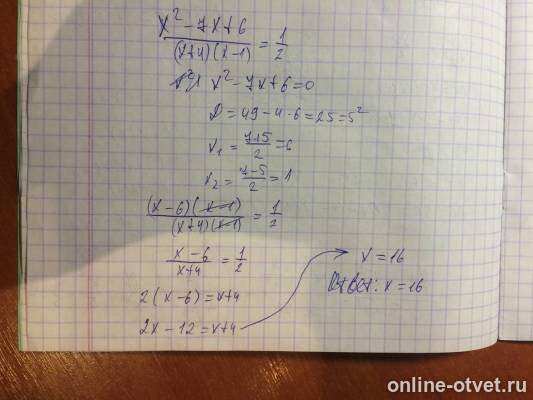 x² - 7x + 6 / (x+4)(x-1) = 1/2
x² - 7x + 6 = 0
D = 49 - 4 · 6 = 25 = 5²
x₁ = 7+5 / 2 = 6
x₂ = 7-5 / 2 = 1
(x-6)(x-1) / (x+4)(x-1) = 1/2
x-6 / x+4 = 1/2
2(x-6) = x+4
2x - 12 = x+4
x = 16
Ответ: x = 16
online-otvet.ru